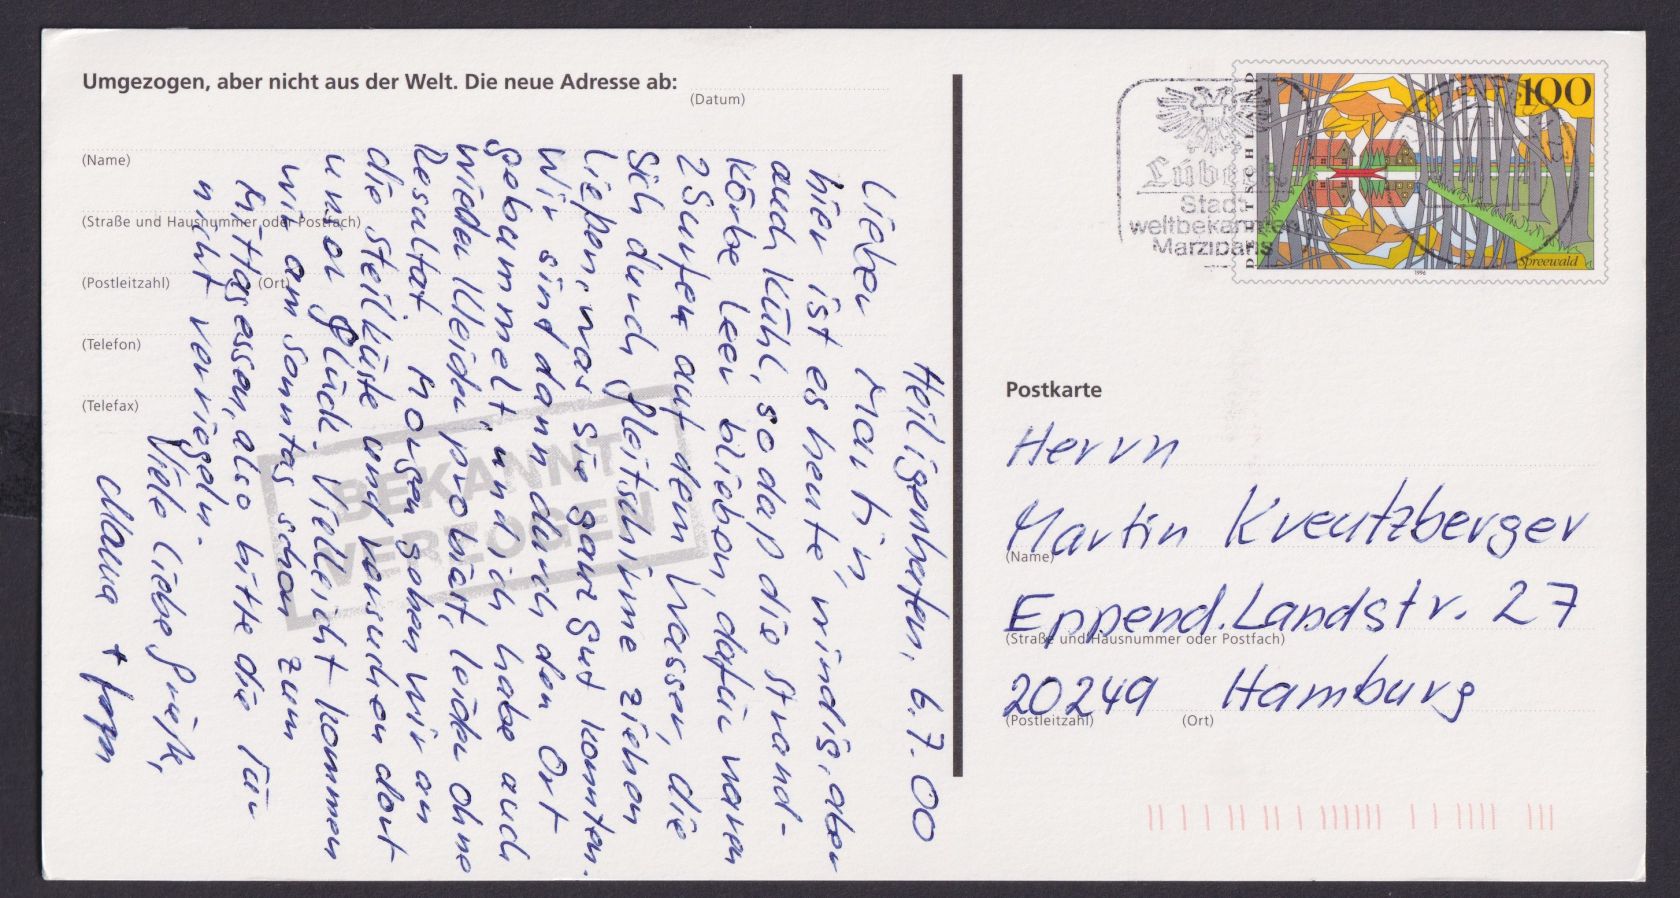 Umgezogen, aber nicht aus der Welt. Die neue Adresse ab:
(Datum)
(Name)
(Straße und Hausnummer oder Postfach)
(Postleitzahl) (Ort)
(Telefon)
(Telefax)
BEKANNT
VERZOGEN
Heiligenhafen, 6.7.00
Lieber Martin,
hier ist es heute windig, aber
auch kühl, so daß die Strand-
körbe leer blieben, dafür waren
2 Surfer auf dem Wasser, die
sich durch Gleitschirme ziehen
ließen, was sie ganz gut konnten.
Wir sind dann durch den Ort
gebummelt und ich habe auch
wieder Kleider probiert, leider ohne
Resultat. Morgen gehen wir an
die Steilküste und versuchen dort
unser Glück. Vielleicht kommen
wir am Sonntag schon zum
Mittagessen, also bitte die Tür
nicht verriegeln.
Viele liebe Grüße,
Mama +
Lübeck
Stadt
weltbekannten
Marzipans
DEUTSCHLAND
100
Spreewald
1996
Postkarte
Herrn
Martin Kreutzberger
(Name)
Eppend. Landstr. 27
(Straße und Hausnummer oder Postfach)
20249 Hamburg
(Postleitzahl) (Ort)